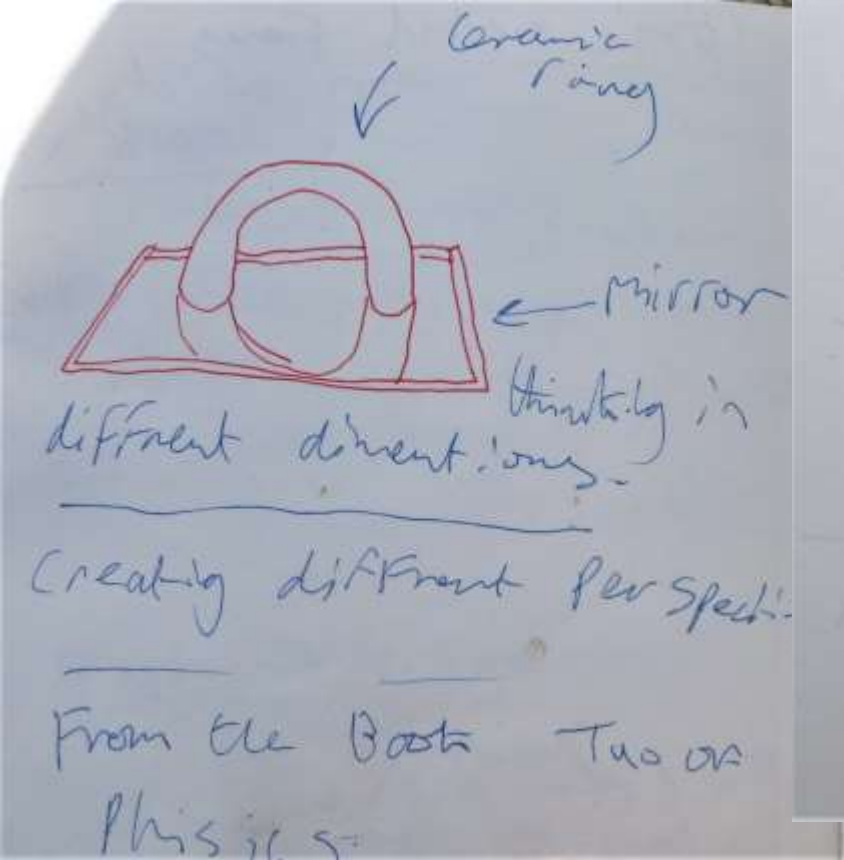 Ceramic
ring
mirror
thinking in
diffrent dimentions.
Creating diffrent Perspecti
From the Book Tao of
Phisics